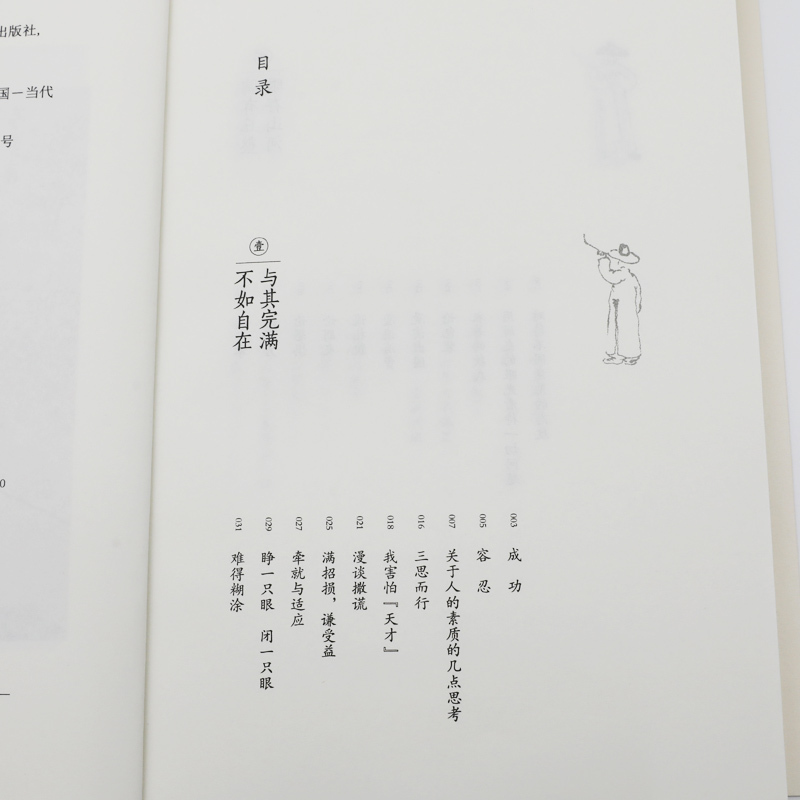 出版社,
国－当代
号
0
目录
壹
与其完满
不如自在
003 成功
005 容忍
007 关于人的素质的几点思考
016 三思而行
018 我害怕『天才』
021 漫谈撒谎
025 满招损，谦受益
027 牵就与适应
029 睁一只眼 闭一只眼
031 难得糊涂